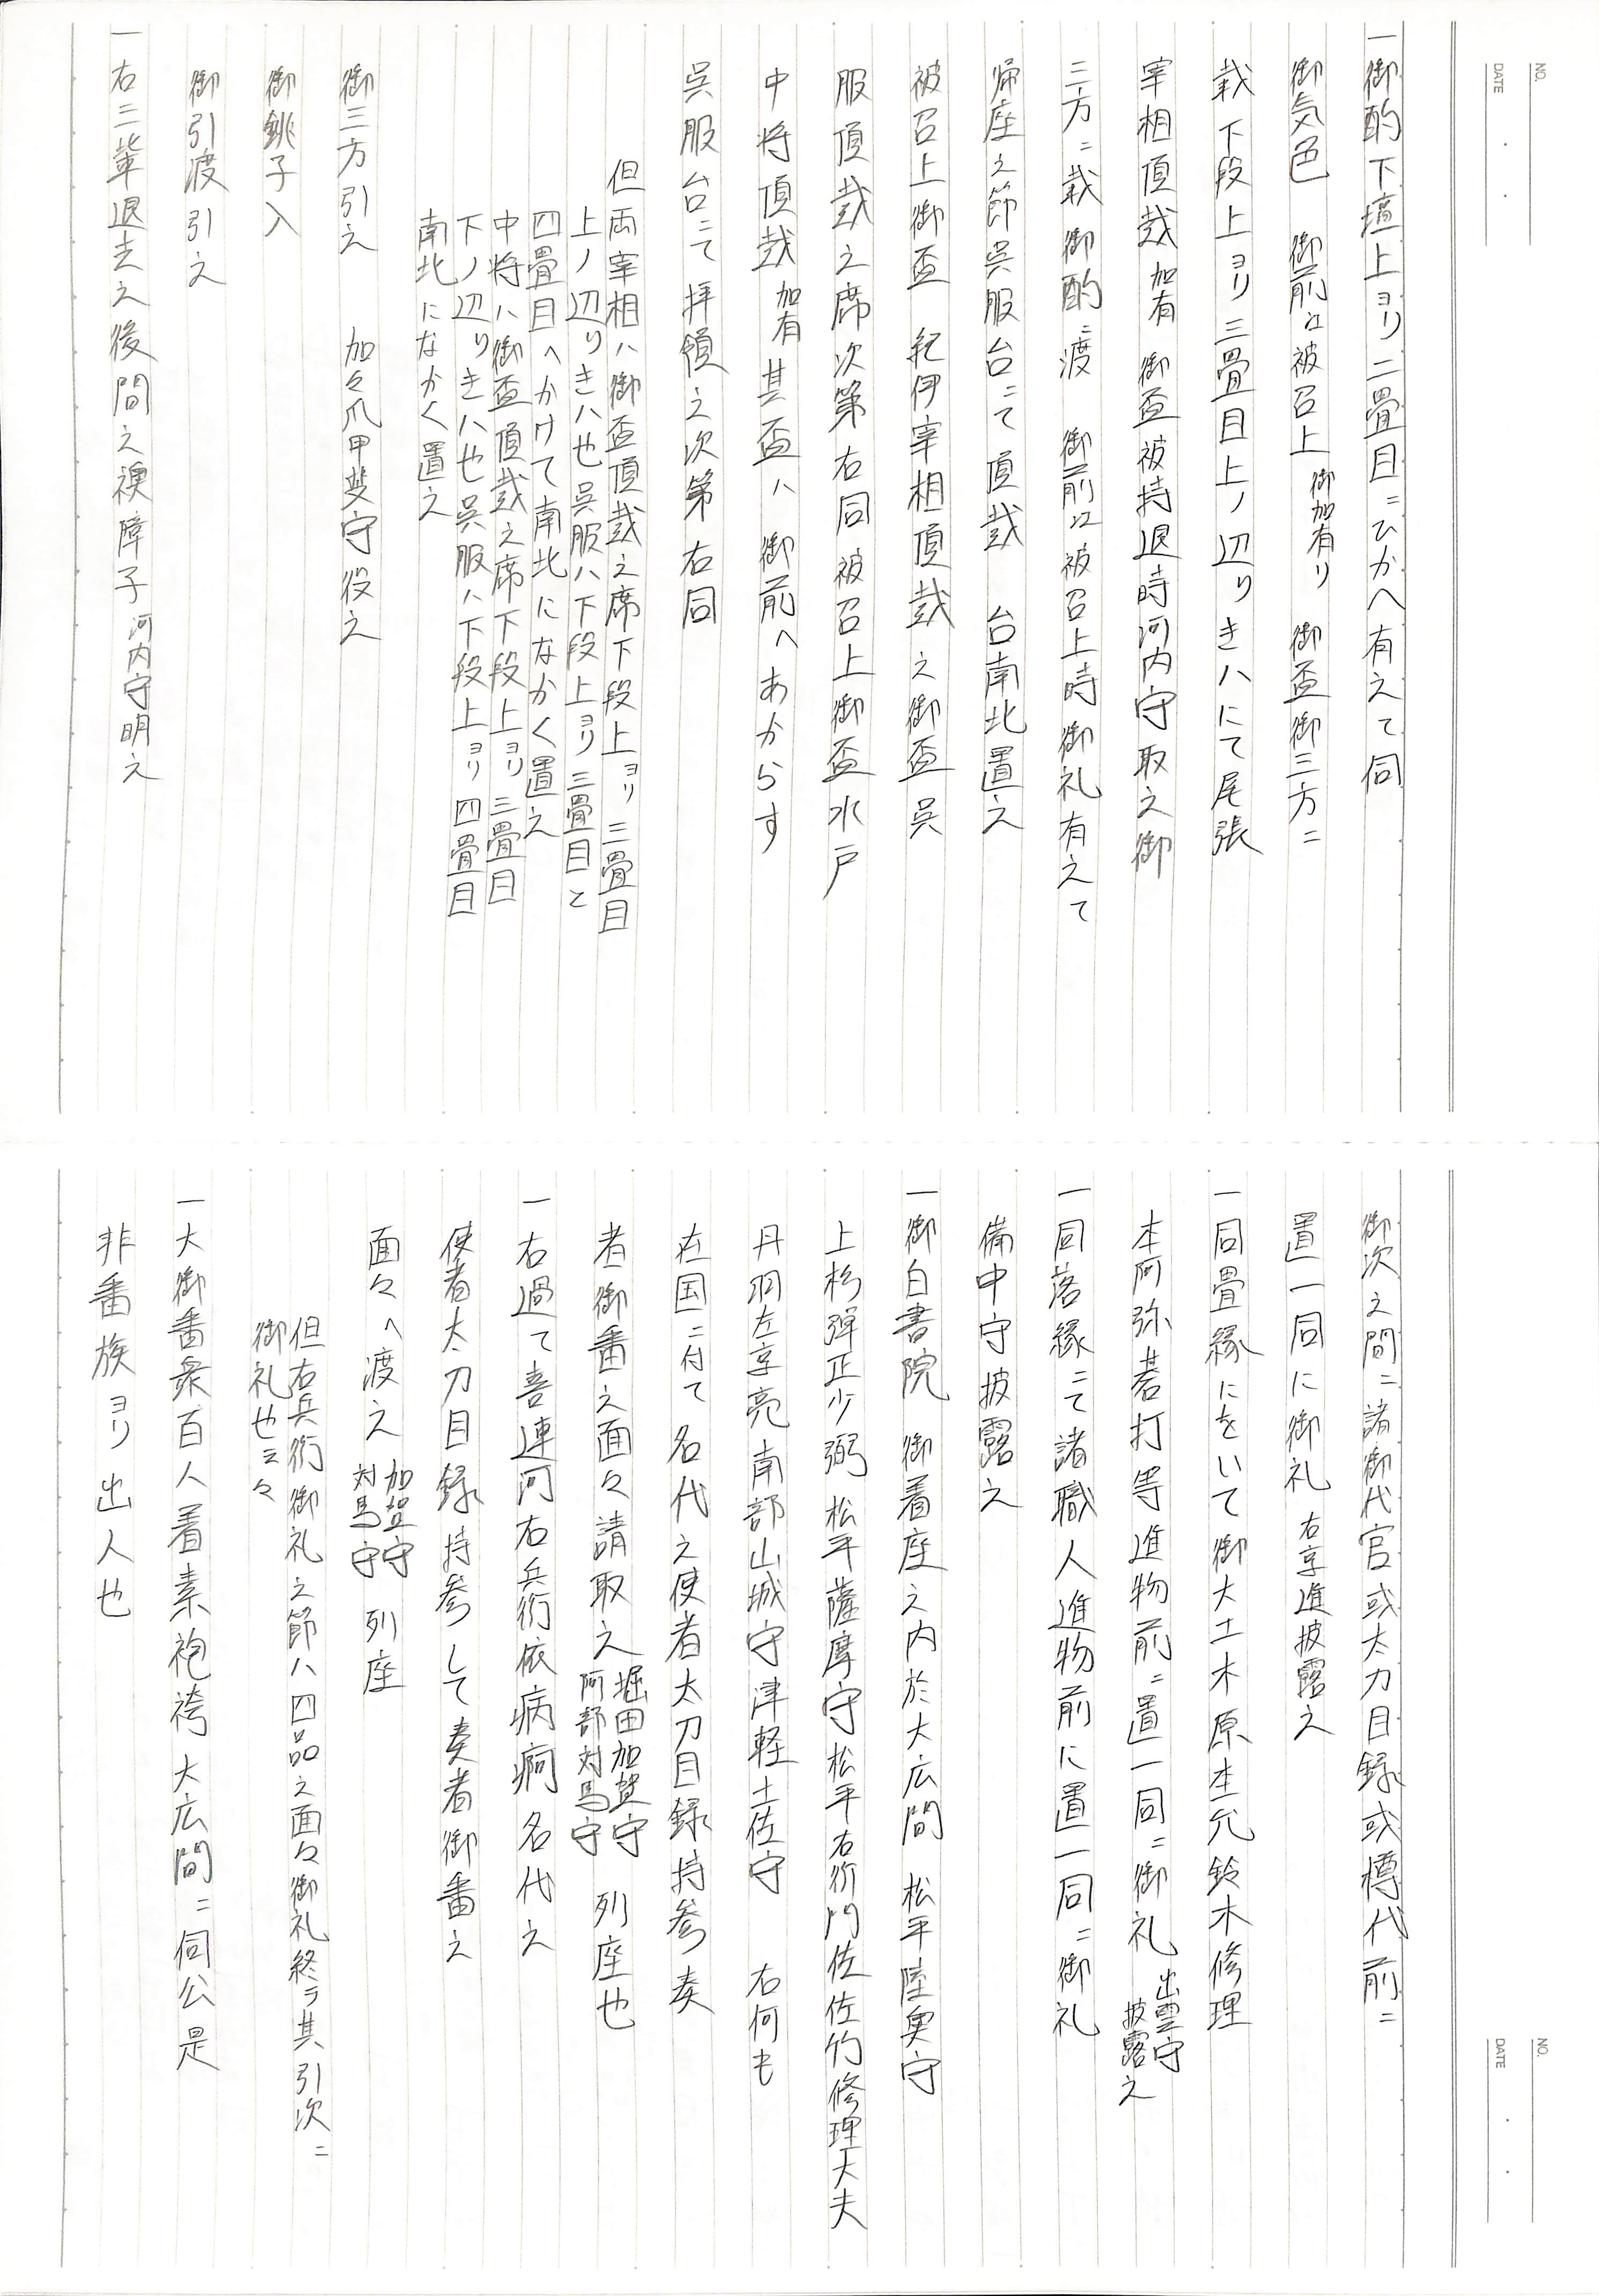 NO.
DATE
一御酌下壇上ヨリ二畳目ニひかへ有之て伺
御気色 御前江被召上 御加有り 御盃御三方ニ
載下段上ヨリ三畳目上ノ辺りきハにて尾張
宰相頂戴 加有 御盃被持退時河内守取之御
三方ニ載御酌ニ渡 御前江被召上時御礼有之て
帰座之節呉服台ニて頂戴 台南北置之
被召上御盃 紀伊宰相頂戴之御盃呉
服頂戴之席次第右同被召上御盃水戸
中将頂戴 加有 其盃ハ御前へあからす
呉服台ニて拝領之次第右同
但両宰相ハ御盃頂戴之席下段上ヨリ三畳目
上ノ辺りきハ也呉服ハ下段上ヨリ三畳目と
四畳目へかけて南北になかく置之
中将ハ御盃頂戴之席下段上ヨリ三畳目
下ノ辺りきハ也呉服ハ下段上ヨリ四畳目
南北になかく置之
御三方引之 加々爪甲斐守役之
御銚子入
御引渡引之
一右三輩退去之後間之襖障子 河内守明之
NO.
DATE
御次之間ニ諸御代官或太刀目録或樽代前ニ
置一同に御礼 右京進披露之
一同畳縁にをいて御大工木原杢允鈴木修理
本阿弥碁打等進物前ニ置一同ニ御礼 出雲守披露之
一同落縁ニて諸職人進物前に置一同ニ御礼
備中守披露之
一御白書院 御着座之内於大広間 松平陸奥守
上杉弾正少弼松平薩摩守松平右衛門佐佐竹修理大夫
丹羽左京亮南部山城守津軽土佐守 右何も
在国ニ付て名代之使者太刀目録持参奏
者御番之面々請取之 堀田加賀守 阿部対馬守 列座也
一右過て喜連河右兵衛依病痾名代之
使者太刀目録持参して奏者御番之
面々へ渡之 加賀守 対馬守 列座
但右兵衛御礼之節ハ四品之面々御礼終ラ其引次ニ
御礼也云々
一大御番衆百人着素袍袴大広間ニ伺公是
非番族ヨリ出人也